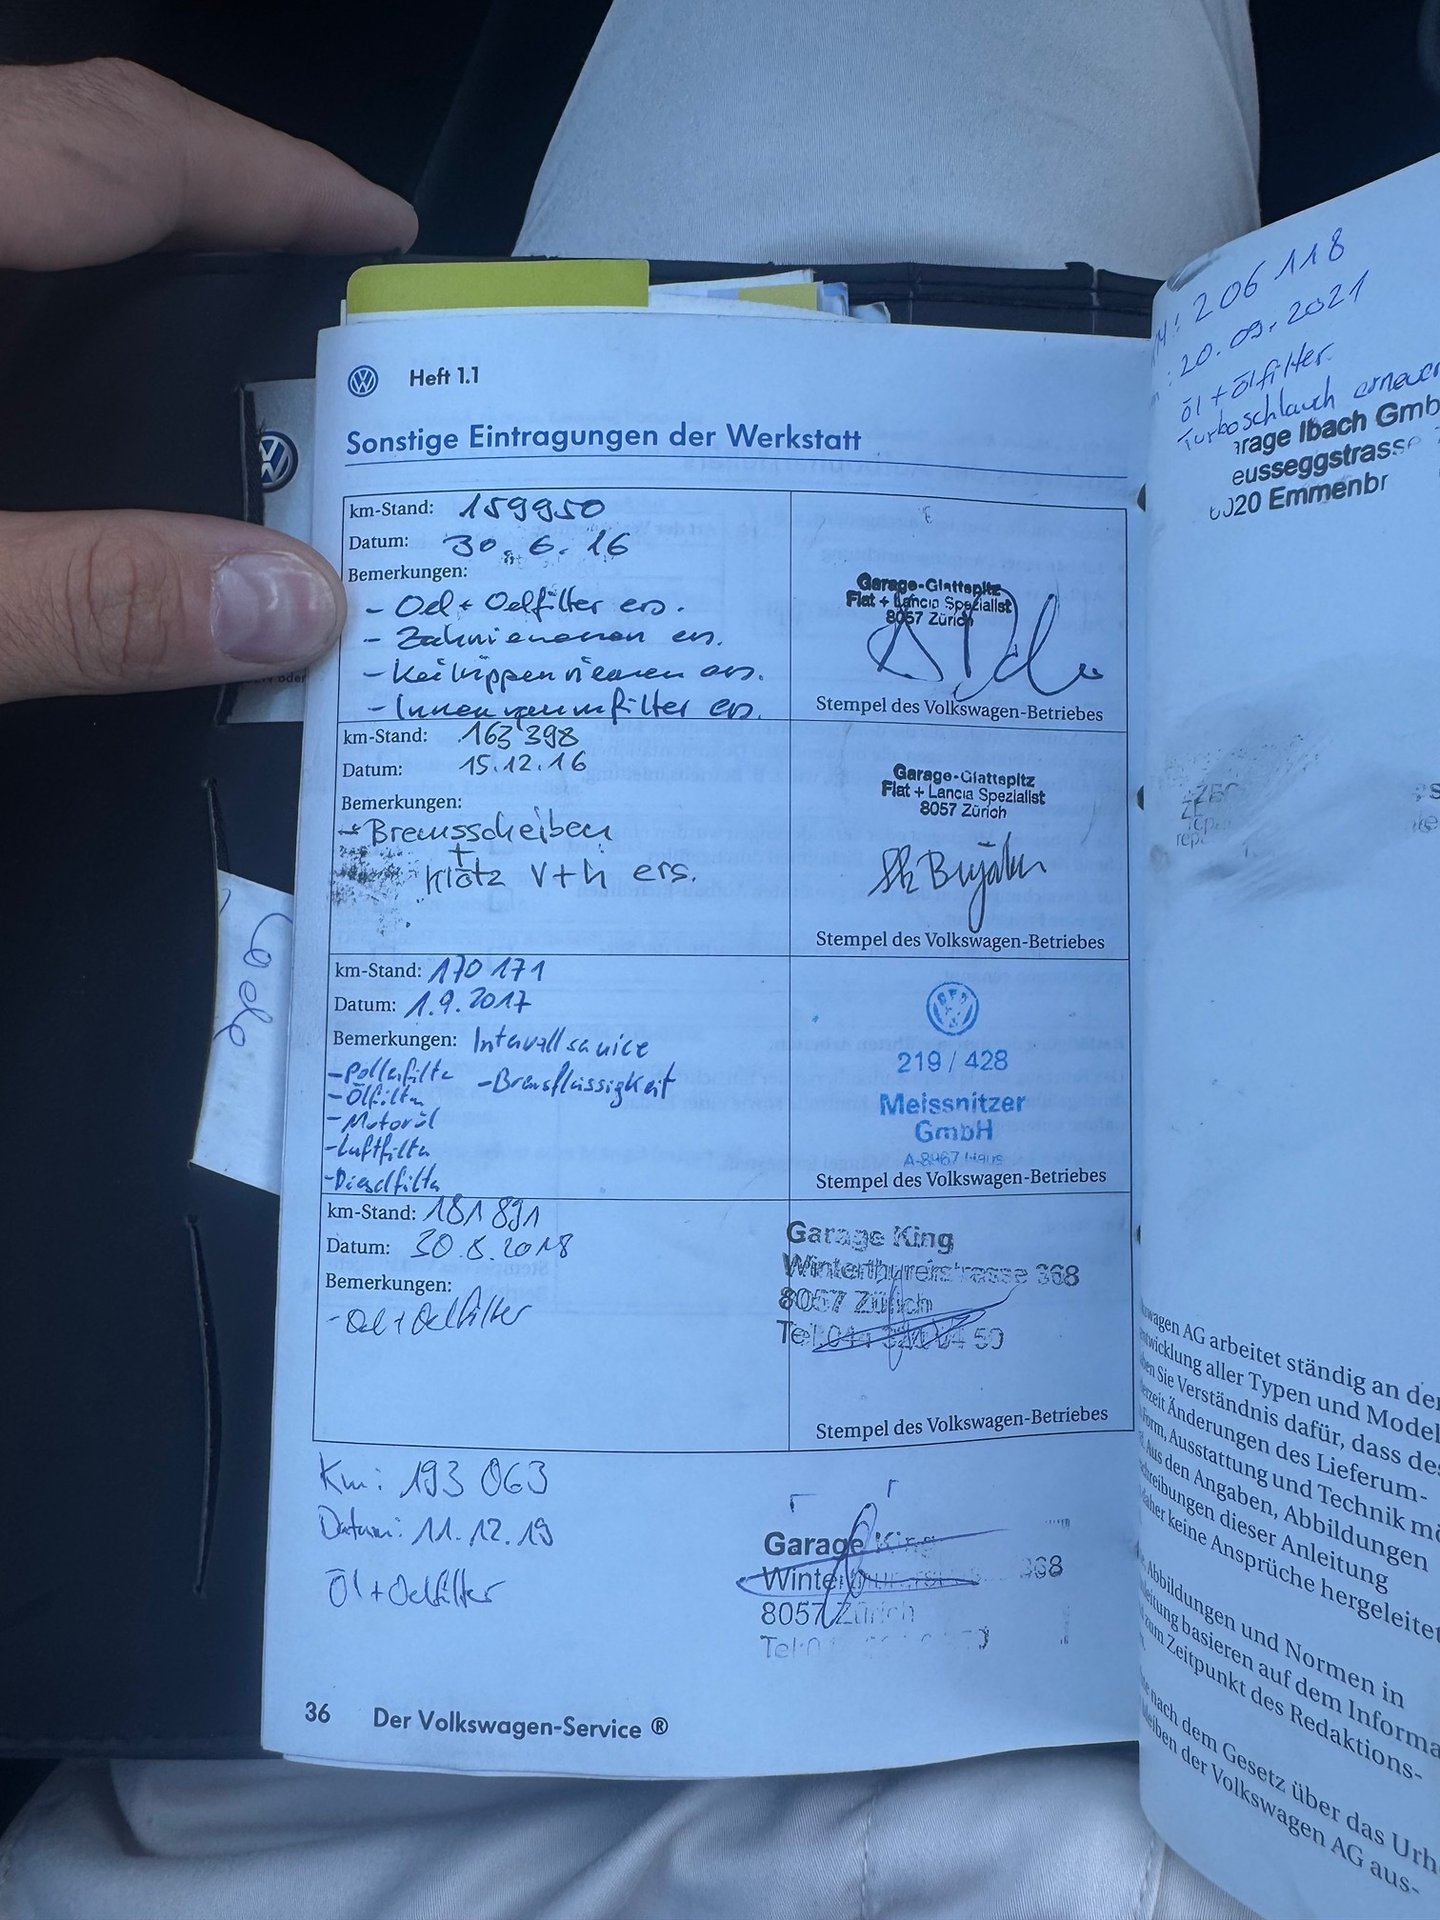 Heft 1.1
Sonstige Eintragungen der Werkstatt
km-Stand: 159950
Datum: 30.6.16
Bemerkungen:
- Oel + Oelfilter ers.
- Zahnriemen ers.
- Keilrippenriemen ers.
- Innenraumfilter ers.
Garage-Glattepitz
Fiat + Lancia Spezialist
8057 Zürich
Stempel des Volkswagen-Betriebes
km-Stand: 163 398
Datum: 15.12.16
Bemerkungen:
- Bremsscheiben
+
Klötz v+h ers.
Garage-Glattepitz
Fiat + Lancia Spezialist
8057 Zürich
Stempel des Volkswagen-Betriebes
km-Stand: 170 171
Datum: 1.9.2017
Bemerkungen: Intervallservice
- Pollenfilter - Bremsflüssigkeit
- Ölfilter
- Motoröl
- Luftfilter
- Dieselfilter
219 / 428
Meissnitzer
GmbH
A-8967 Haus
Stempel des Volkswagen-Betriebes
km-Stand: 181 891
Datum: 30.8.2018
Bemerkungen:
- Oel + Oelfilter
Garage King
Winterthurerstrasse 368
8057 Zürich
Stempel des Volkswagen-Betriebes
Km: 193 063
Datum: 11.12.19
Öl + Oelfilter
Garage King
368
8057 Zürich
36 Der Volkswagen-Service ®
Code
oder
206 118
20.09.2021
Öl + Ölfilter
Turboschlauch erneuer
rage Ibach Gmb
eusseggstrasse
6020 Emmenbr
wagen AG arbeitet ständig an der
ntwicklung aller Typen und Model
Sie Verständnis dafür, dass des
Änderungen des Lieferum-
Form, Ausstattung und Technik mö
Aus den Angaben, Abbildungen
chreibungen dieser Anleitung
daher keine Ansprüche hergeleitet
Abbildungen und Normen in
leitung basieren auf dem Informa
zum Zeitpunkt des Redaktions-
nach dem Gesetz über das Urhe
bleiben der Volkswagen AG aus-